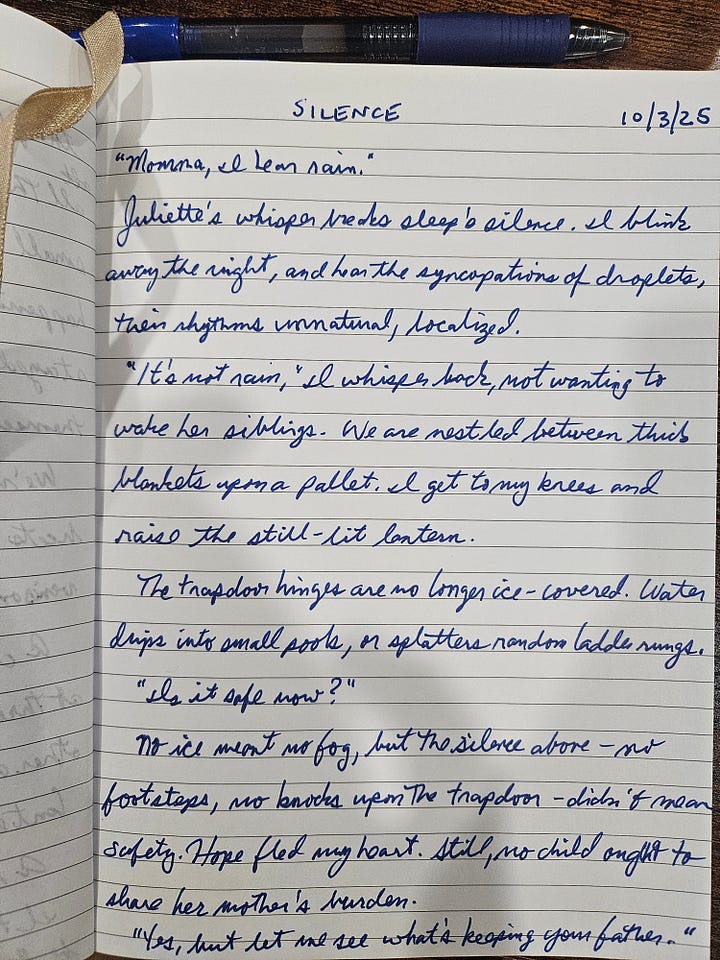 SILENCE
10/3/25
"Momma, I hear rain."
Juliette's whisper breaks sleep's silence. I blink
away the night, and hear the syncopations of droplets,
their rhythms unnatural, localized.
"It's not rain," I whisper back, not wanting to
wake her siblings. We are nestled between thick
blankets upon a pallet. I get to my knees and
raise the still-lit lantern.
The trapdoor hinges are no longer ice-covered. Water
drips into small pools, or splatters random ladder rungs.
"Is it safe now?"
No ice meant no fog, but the silence above - no
footsteps, no knocks upon the trapdoor - didn't mean
safety. Hope fled my heart. Still, no child ought to
share her mother's burden.
"Yes, but let me see what's keeping your father."